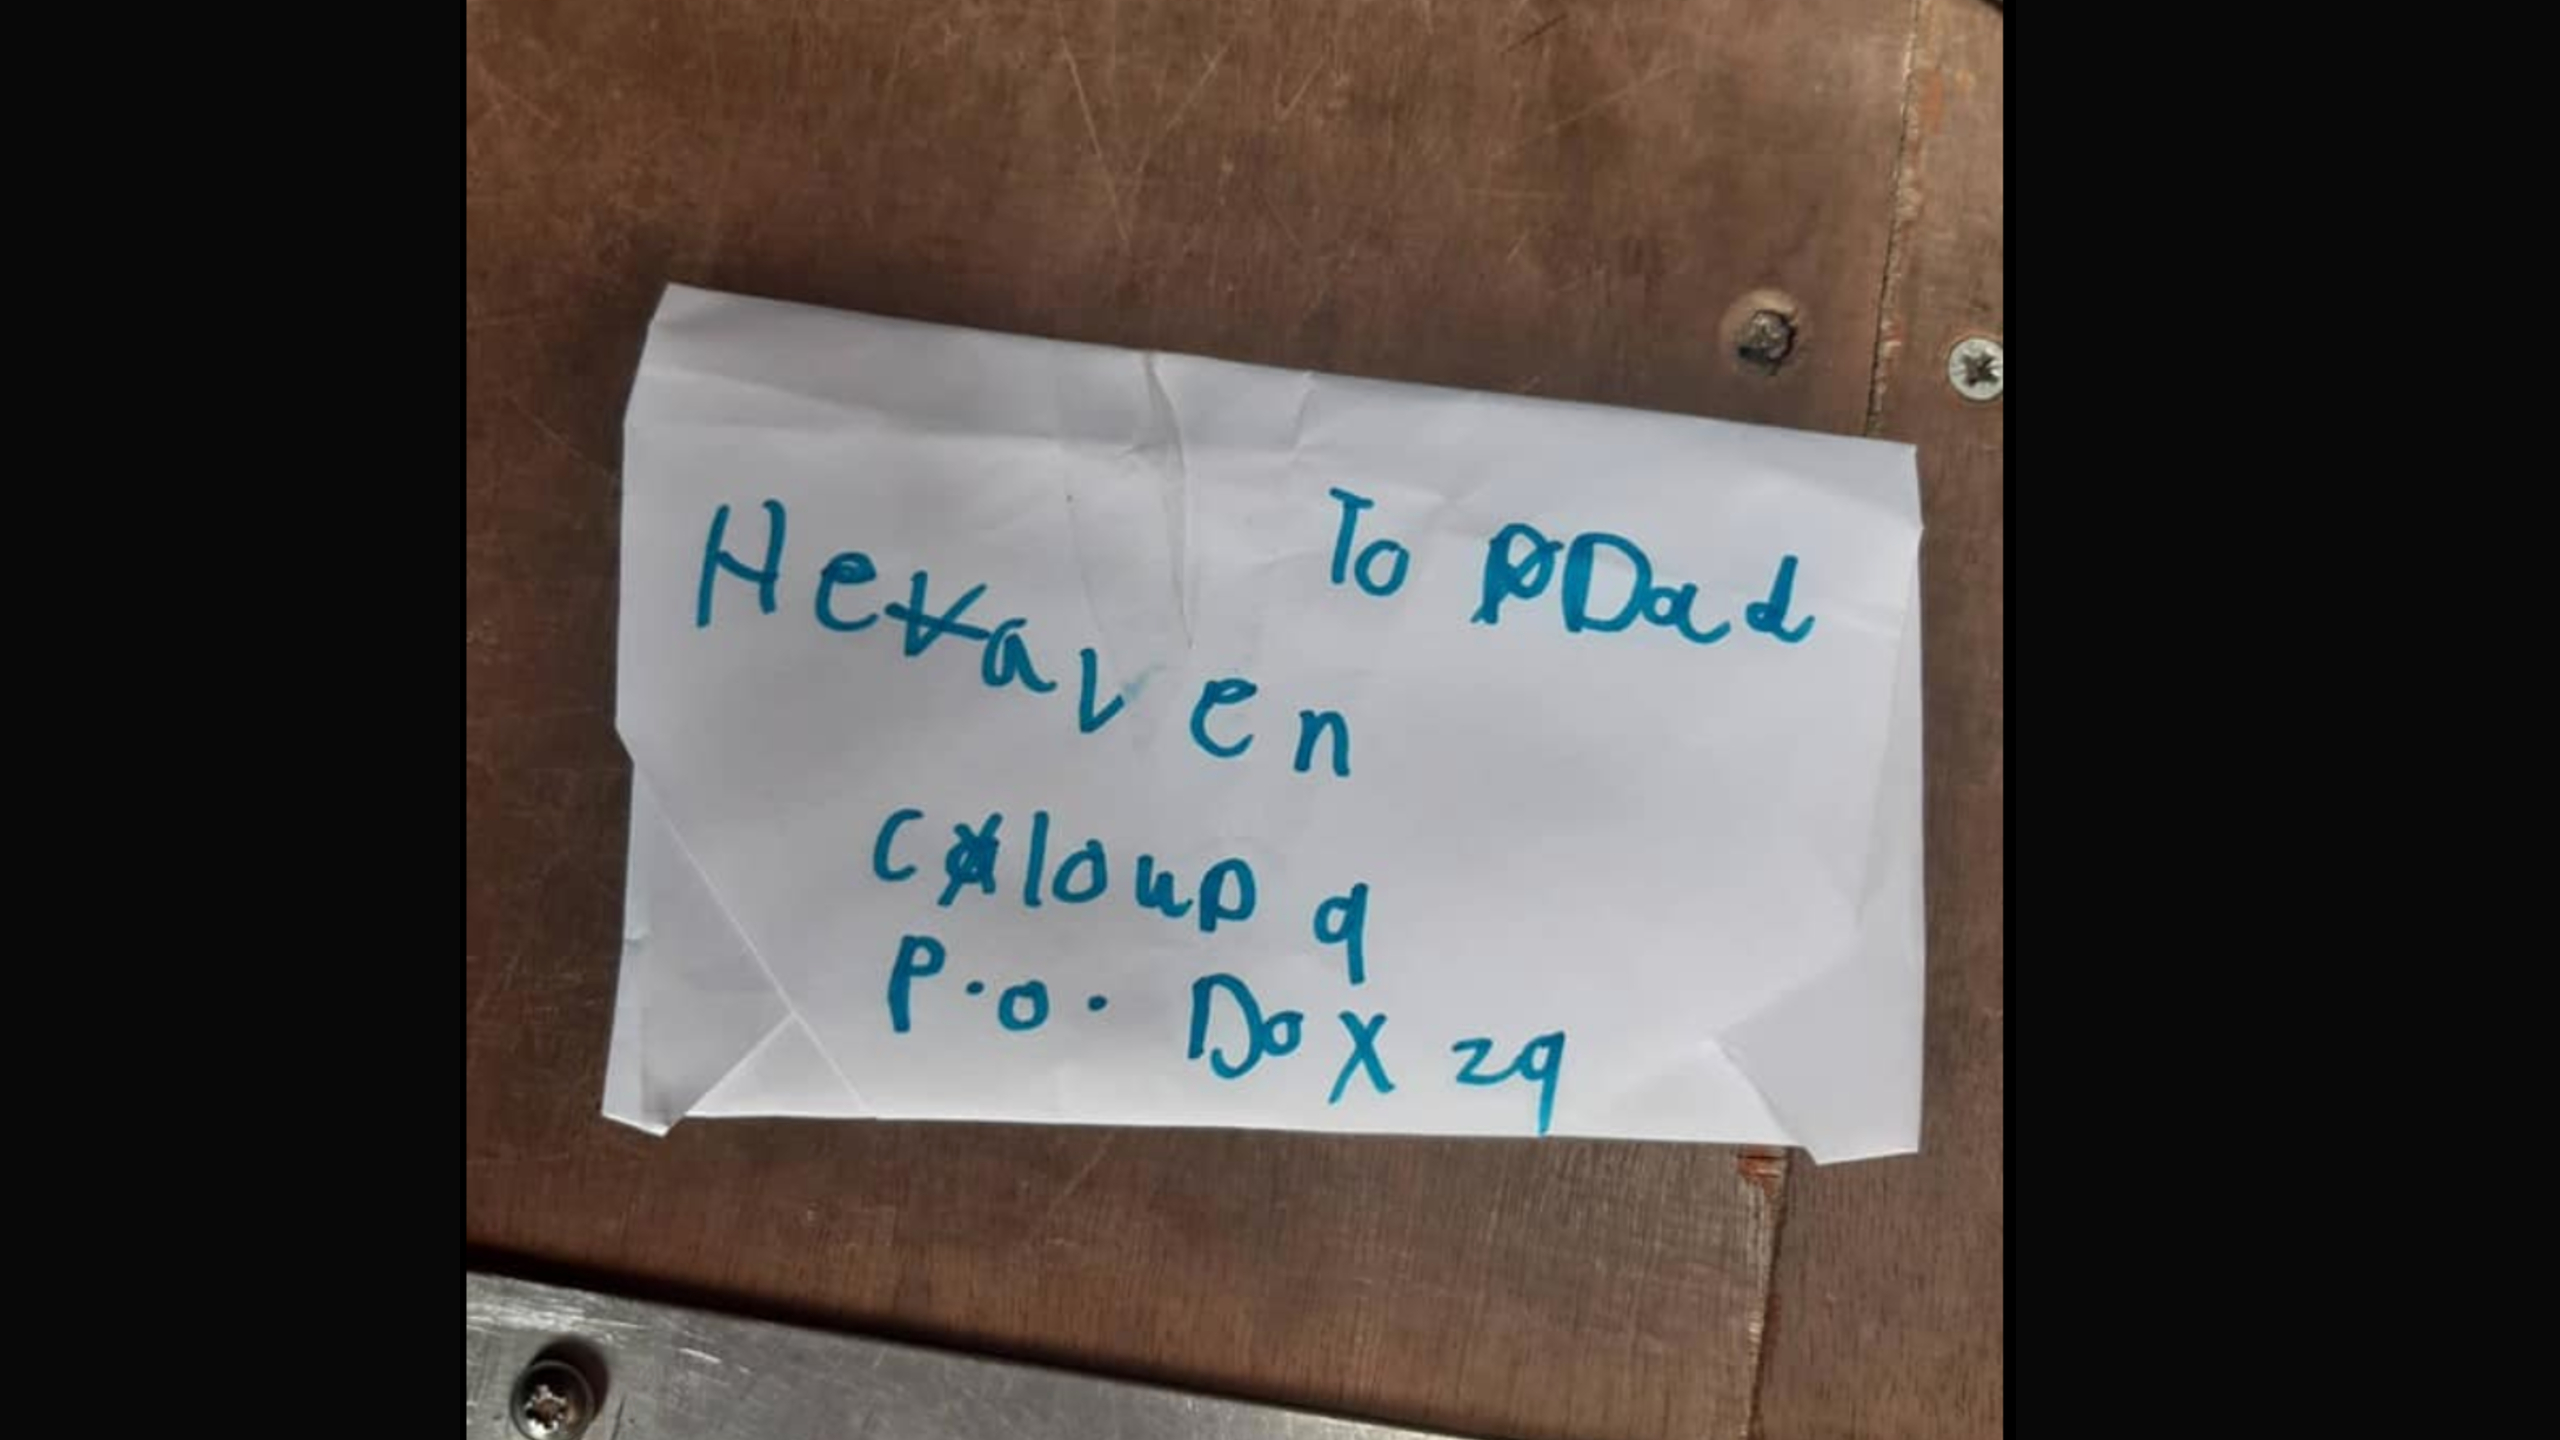 To Dad
Heaven
cloud 9
P.O. Box 29